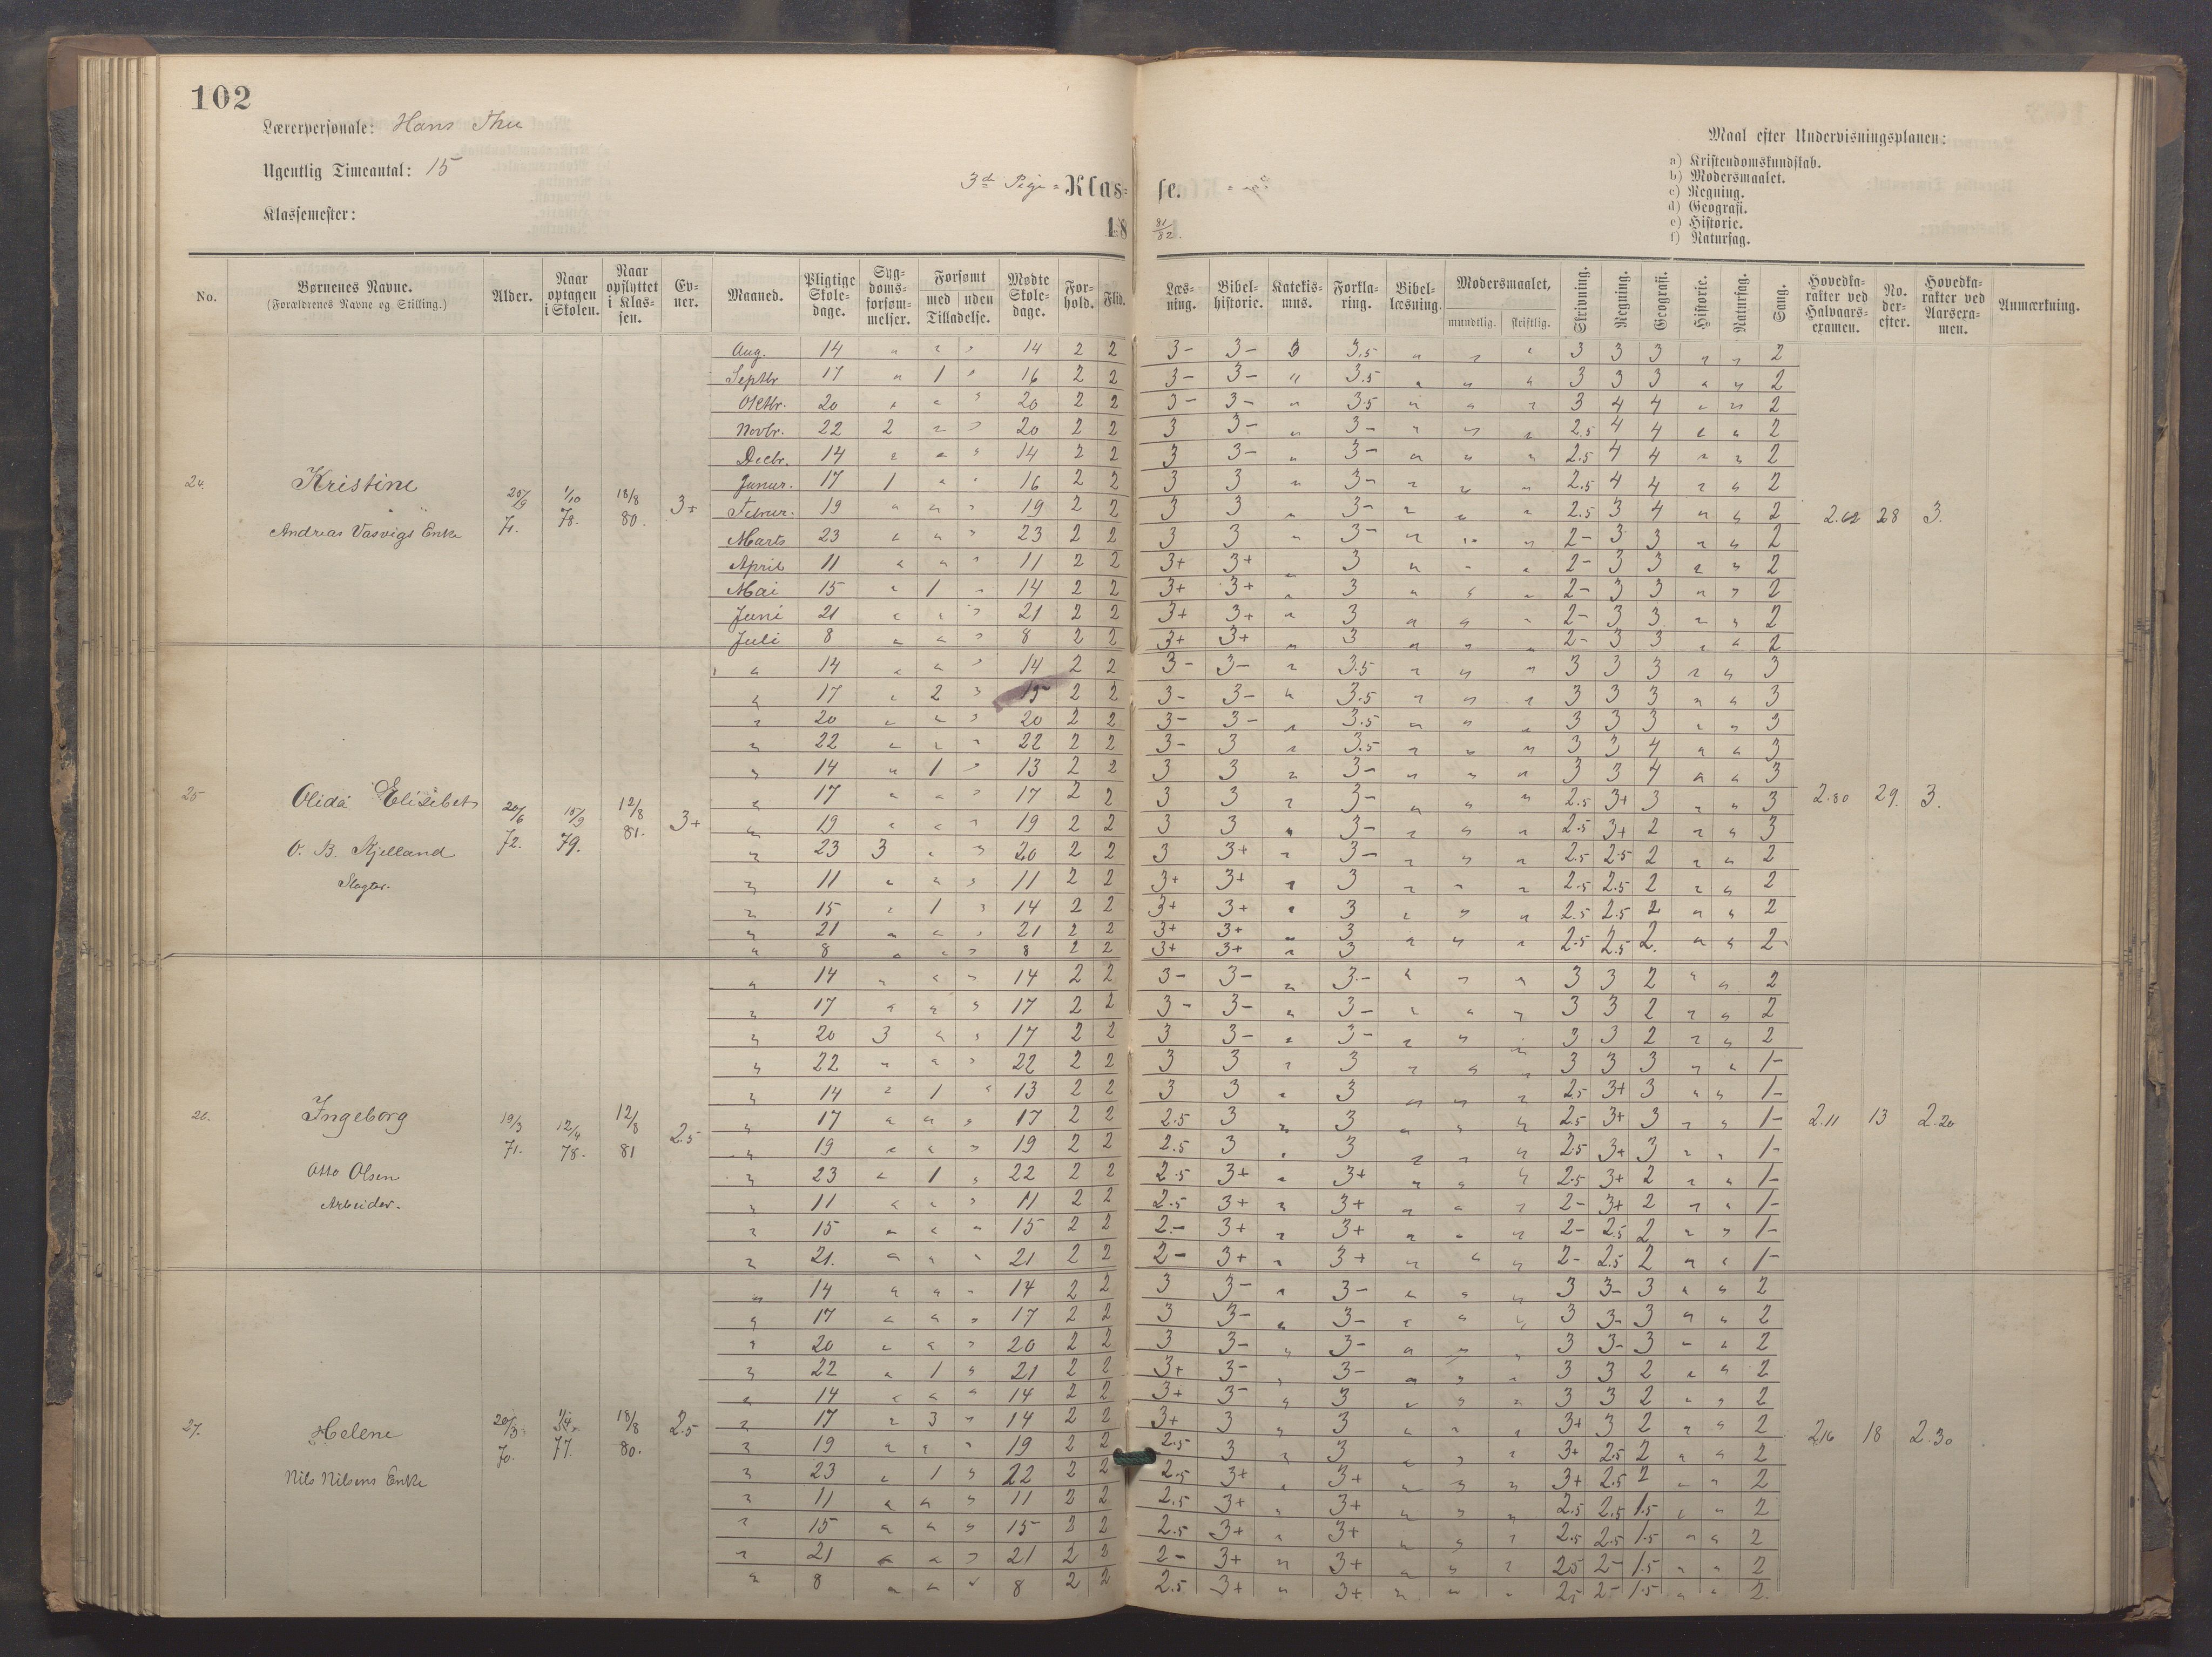 102
Lærerpersonale: Hans Thu
Ugentlig Timeantal: 15
Klassemester:
3de Pige- Klas- se.
18 81/82.
Maal efter Undervisningsplanen:
a) Kristendomskundskab.
b) Modersmaalet.
c) Regning.
d) Geografi.
e) Historie.
f) Natursag.
No. Børnenes Navne. (Forældrenes Navne og Stilling.) Alder. Naar optagen i Skolen. Naar opflyttet i Klassen. Evner. Maaned. Pligtige Skoledage. Sygdomsforsømmelser. Forsømt med uden Tilladelse. Mødte Skoledage. Forhold. Flid. Læsning. Bibelhistorie. Katekismus. Forklaring. Bibellæsning. Modersmaalet, mundtlig. skriftlig. Skrivning. Regning. Geografi. Historie. Natursag. Sang. Hovedkarakter ved Halvaarsexamen. No. derefter. Hovedkarakter ved Aarsexamen. Anmærkning.
24. Kristine
Andreas Vasvigs Enke
71. 1/10 78. 18/8 80. 3+
2.62 28 3.
Aug. 14 " " " 14 2 2 3- 3- 3 3.5 " " " 3 3 3 " " 2
Septbr 17 " 1 " 16 2 2 3- 3- " 3.5 " " " 3 3 3 " " 2
Oktbr. 20 " " " 20 2 2 3- 3- " 3.5 " " " 3 4 4 " " 2
Novbr. 22 2 " " 20 2 2 3 3- " 3- " " " 2.5 4 4 " " 2
Decbr. 14 " " " 14 2 2 3 3- " 3- " " " 2.5 4 4 " " 2
Janur. 17 1 " " 16 2 2 3 3 " 3- " " " 2.5 4 4 " " 2
Februr. 19 " " " 19 2 2 3 3 " 3- " " " 2.5 3 4 " " 2
Marts 23 " " " 23 2 2 3 3 " 3- " " " 2- 3 3 " " 2
April 11 " " " 11 2 2 3+ 3+ " 3 " " " 2- 3 3 " " 2
Mai 15 " 1 " 14 2 2 3+ 3+ " 3 " " " 2- 3 3 " " 2
Juni 21 " " " 21 2 2 3+ 3+ " 3 " " " 2- 3 3 " " 2
Juli 8 " " " 8 2 2 3+ 3+ " 3 " " " 2- 3 3 " " 2
25 Olida Elisabet
O. B. Kjelland
Slagter.
20/6 72. 15/9 79. 12/8 81. 3+
2.80 29. 3.
" 14 " " " 14 2 2 3- 3- " 3.5 " " " 3 3 3 " " 3
" 17 " 2 " 15 2 2 3- 3- " 3.5 " " " 3 3 3 " " 3
" 20 " " " 20 2 2 3- 3- " 3.5 " " " 3 3 3 " " 3
" 22 " " " 22 2 2 3- 3 " 3.5 " " " 3 3 4 " " 3
" 14 " 1 " 13 2 2 3 3 " 3- " " " 3 3 4 " " 3
" 17 " " " 17 2 2 3 3 " 3- " " " 2.5 3+ 3 " " 3
" 19 " " " 19 2 2 3 3 " 3- " " " 2.5 3+ 2 " " 3
" 23 3 " " 20 2 2 3 3+ " 3- " " " 2.5 2.5 2 " " 2
" 11 " " " 11 2 2 3+ 3+ " 3 " " " 2.5 2.5 2 " " 2
" 15 " 1 " 14 2 2 3+ 3+ " 3 " " " 2.5 2.5 2 " " 2
" 21 " " " 21 2 2 3+ 3+ " 3 " " " 2.5 2.5 2. " " 2
" 8 " " " 8 2 2 3+ 3+ " 3
26. Ingeborg
Otto Olsen
Arbeider.
19/3 71. 12/4 78. 12/8 81 2.5
2.11 13 2.20
" 14 " " " 14 2 2 3- 3- " 3- " " " 3 3 2 " " 2
" 17 " " " 17 2 2 3- 3- " 3- " " " 3 3 2 " " 2
" 20 3 " " 17 2 2 3 3- " 3- " " " 3 3 2 " " 2
" 22 " " " 22 2 2 3 3 " 3 " " " 3 3 3 " " 1-
" 14 " 1 " 13 2 2 3 3 " 3 " " " 2.5 3+ 3 " " 1-
" 17 " " " 17 2 2 2.5 3 " 3 " " " 2.5 3+ 3 " " 1-
" 19 " " " 19 2 2 2.5 3 " 3 " " " 2.5 3+ 3 " " 1-
" 23 " 1 " 22 2 2 2.5 3+ " 3+ " " " 2.5 3+ 2 " " 1-
" 11 " " " 11 2 2 2.5 3+ " 3+ " " " 2- 3+ 2 " " 1-
" 15 " " " 15 2 2 2- 3+ " 3+ " " " 2- 2.5 2 " " 1-
" 21. " " " 21 2 2 2- 3+ " 3+ " " " 2- 2.5 2 " " 1-
27. Helene
Nils Nilsens Enke
20/3 70. 77. 18/8 80. 2.5
2.16 18 2.30
" 14 " " " 14 2 2 3 3- " 3- " " " 3 3- 3 " " 2
" 17 " " " 17 2 2 3 3- " 3- " " " 3 3- 3 " " 2
" 20 " " " 20 2 2 3 3- " 3- " " " 3 3- 3 " " 2
" 22 " 1 " 21 2 2 3+ 3- " 3- " " " 3 3 2 " " 2
" 14 " " " 14 2 2 3+ 3- " 3 " " " 3 3 2 " " 2
" 17 " 3 " 14 2 2 3+ 3 " 3 " " " 3+ 3 2 " " 2
" 19 " " " 19 2 2 2.5 3 " 3 " " " 3+ 2.5 2 " " 2
" 23 " 1 " 22 2 2 2.5 3+ " 3+ " " " 3+ 2.5 2 " " 2
" 11 " " " 11 2 2 2.5 3+ " 3+ " " " 2.5 2.5 1.5 " " 2
" 15 " " " 15 2 2 2.5 3+ " 3+ " " " 2.5 2.5 1.5 " " 2
" 21 " " " 21 2 2 2- 3+ " 3+ " " " 2.5 2- 1.5 " " 2
" 8 " " " 8 2 2 2.5 3+ " 3+ " " " 2.5 2- 1.5 " " 2.